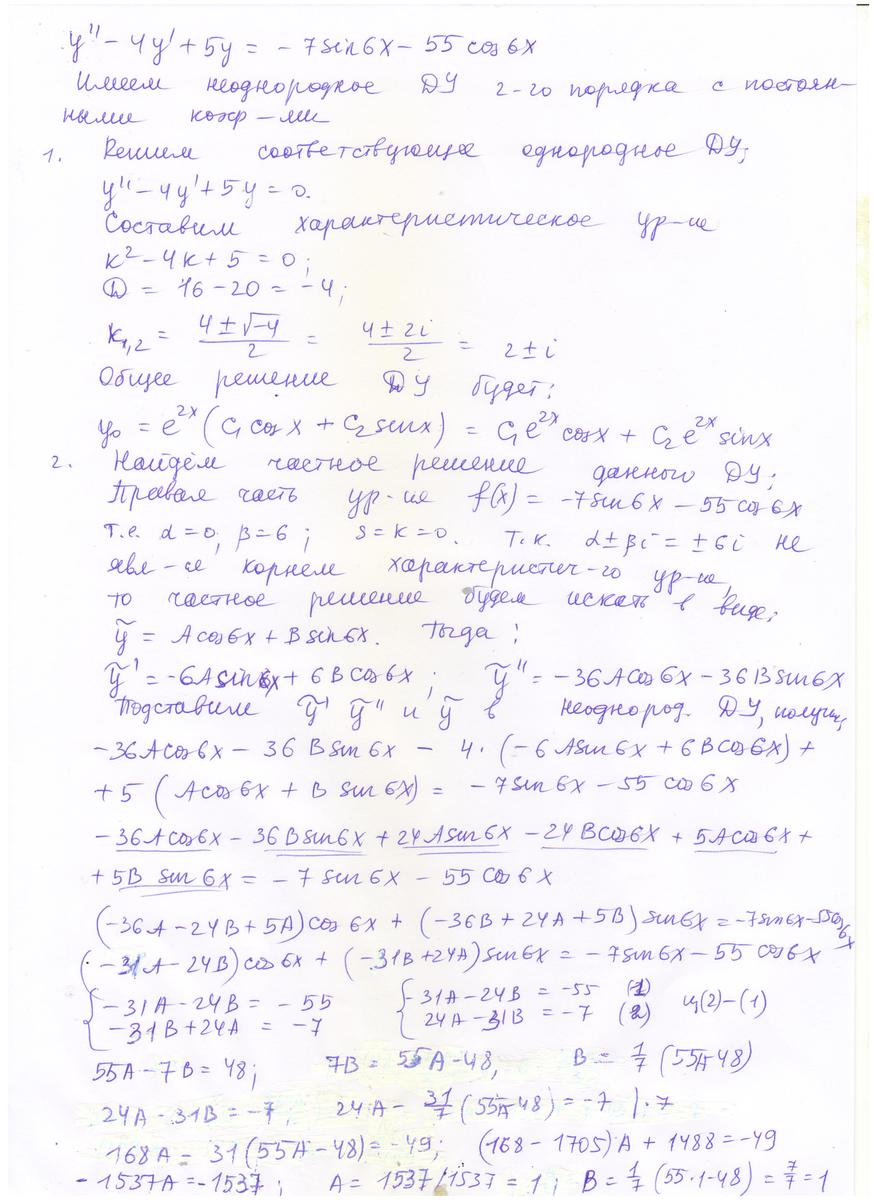 y'' - 4y' + 5y = - 7 sin 6x - 55 cos 6x
Имеем неоднородное ДУ 2-го порядка с постоян-
ными коэф-ми
1. Решим соответствующее однородное ДУ;
y'' - 4y' + 5y = 0.
Составим характеристическое ур-ие
k² - 4k + 5 = 0;
D = 16 - 20 = -4;
k₁,₂ = (4 ± √-4)/2 = (4 ± 2i)/2 = 2 ± i
Общее решение ДУ будет:
y₀ = e^{2x} (C₁ cos x + C₂ sin x) = C₁ e^{2x} cos x + C₂ e^{2x} sin x
2. Найдём частное решение данного ДУ;
Правая часть ур-ия f(x) = -7 sin 6x - 55 cos 6x
т.е. α = 0, β = 6; s = k = 0. т.к. α ± βi = ± 6i не
явл-ся корнем характеристич-го ур-ия,
то частное решение будем искать в виде:
ỹ = A cos 6x + B sin 6x. Тогда:
ỹ' = -6A sin 6x + 6B cos 6x; ỹ'' = -36A cos 6x - 36B sin 6x
Подставим ỹ' ỹ'' и ỹ в неоднород. ДУ, получим
-36A cos 6x - 36 B sin 6x - 4 · (-6A sin 6x + 6B cos 6x) +
+ 5 (A cos 6x + B sin 6x) = -7 sin 6x - 55 cos 6x
-36A cos 6x - 36 B sin 6x + 24 A sin 6x - 24 B cos 6x + 5A cos 6x +
+ 5B sin 6x = - 7 sin 6x - 55 cos 6x
(-36A - 24B + 5A) cos 6x + (-36B + 24A + 5B) sin 6x = -7 sin 6x - 55 cos 6x
(-31A - 24B) cos 6x + (-31B + 24A) sin 6x = -7 sin 6x - 55 cos 6x
{ -31A - 24B = -55 { -31A - 24B = -55 (1)
-31B + 24A = -7 24A - 31B = -7 (2) (2)-(1)
55A - 7B = 48; 7B = 55A - 48, B = 1/7 (55A - 48)
24A - 31B = -7; 24A - 31/7 (55A - 48) = -7 | · 7
168A = 31(55A - 48) = -49; (168 - 1705)A + 1488 = -49
- 1537A = -1537; A = 1537/1537 = 1; B = 1/7 (55·1 - 48) = 7/7 = 1